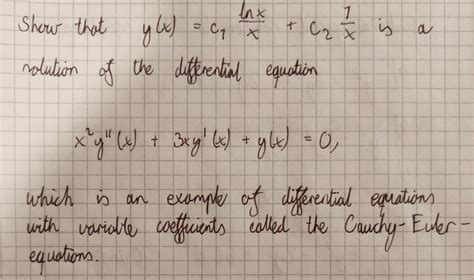 Show that y(x) = c₁ lnx/x + c₂ 1/x is a
solution of the differential equation
x²y''(x) + 3xy'(x) + y(x) = 0,
which is an example of differential equations
with variable coefficients called the Cauchy-Euler-
equations.